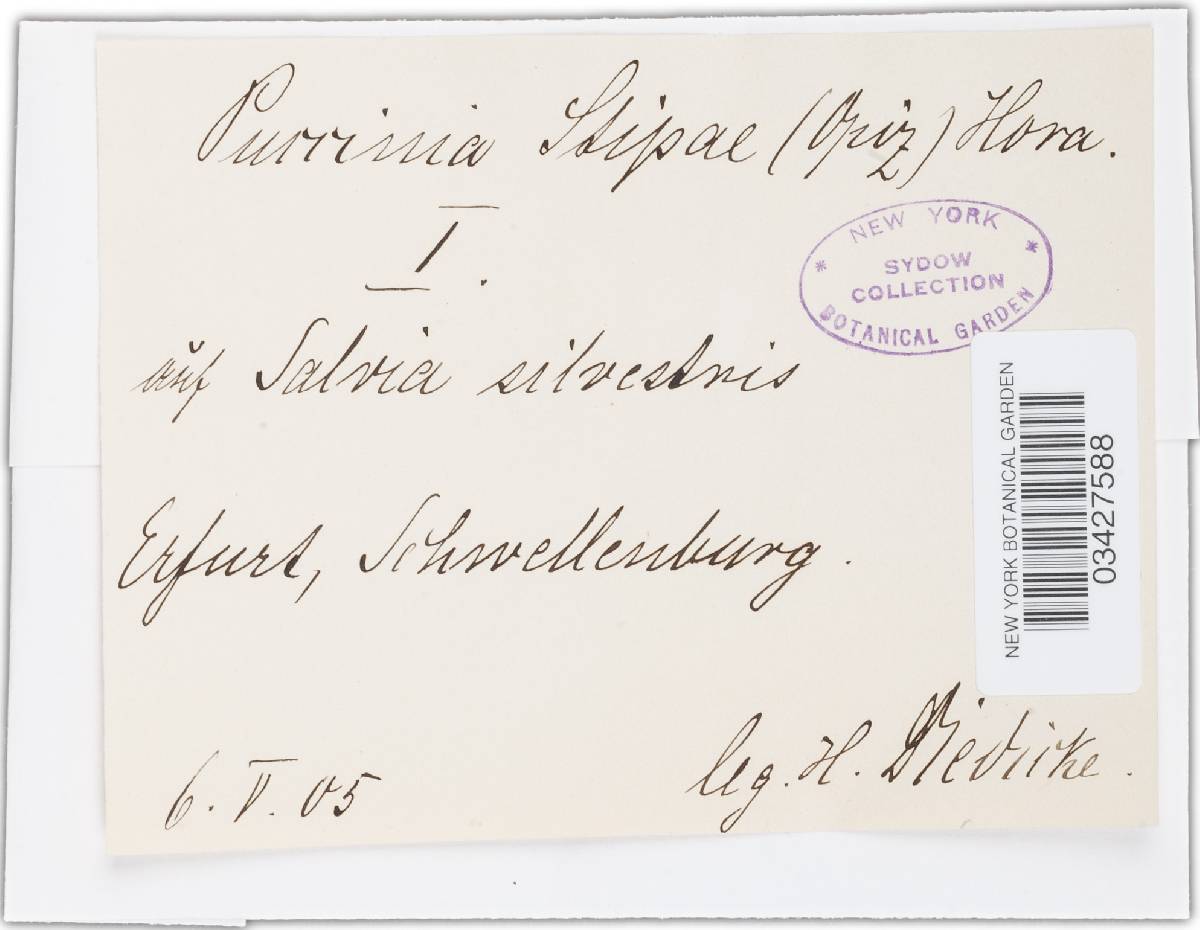 Puccinia Stipae (Opiz) Hora.
I.
auf Salvia silvestris
Erfurt, Schwellenburg.
6. V. 05
leg. H. Diedicke.
NEW YORK
* SYDOW *
COLLECTION
BOTANICAL GARDEN
NEW YORK BOTANICAL GARDEN
03427588